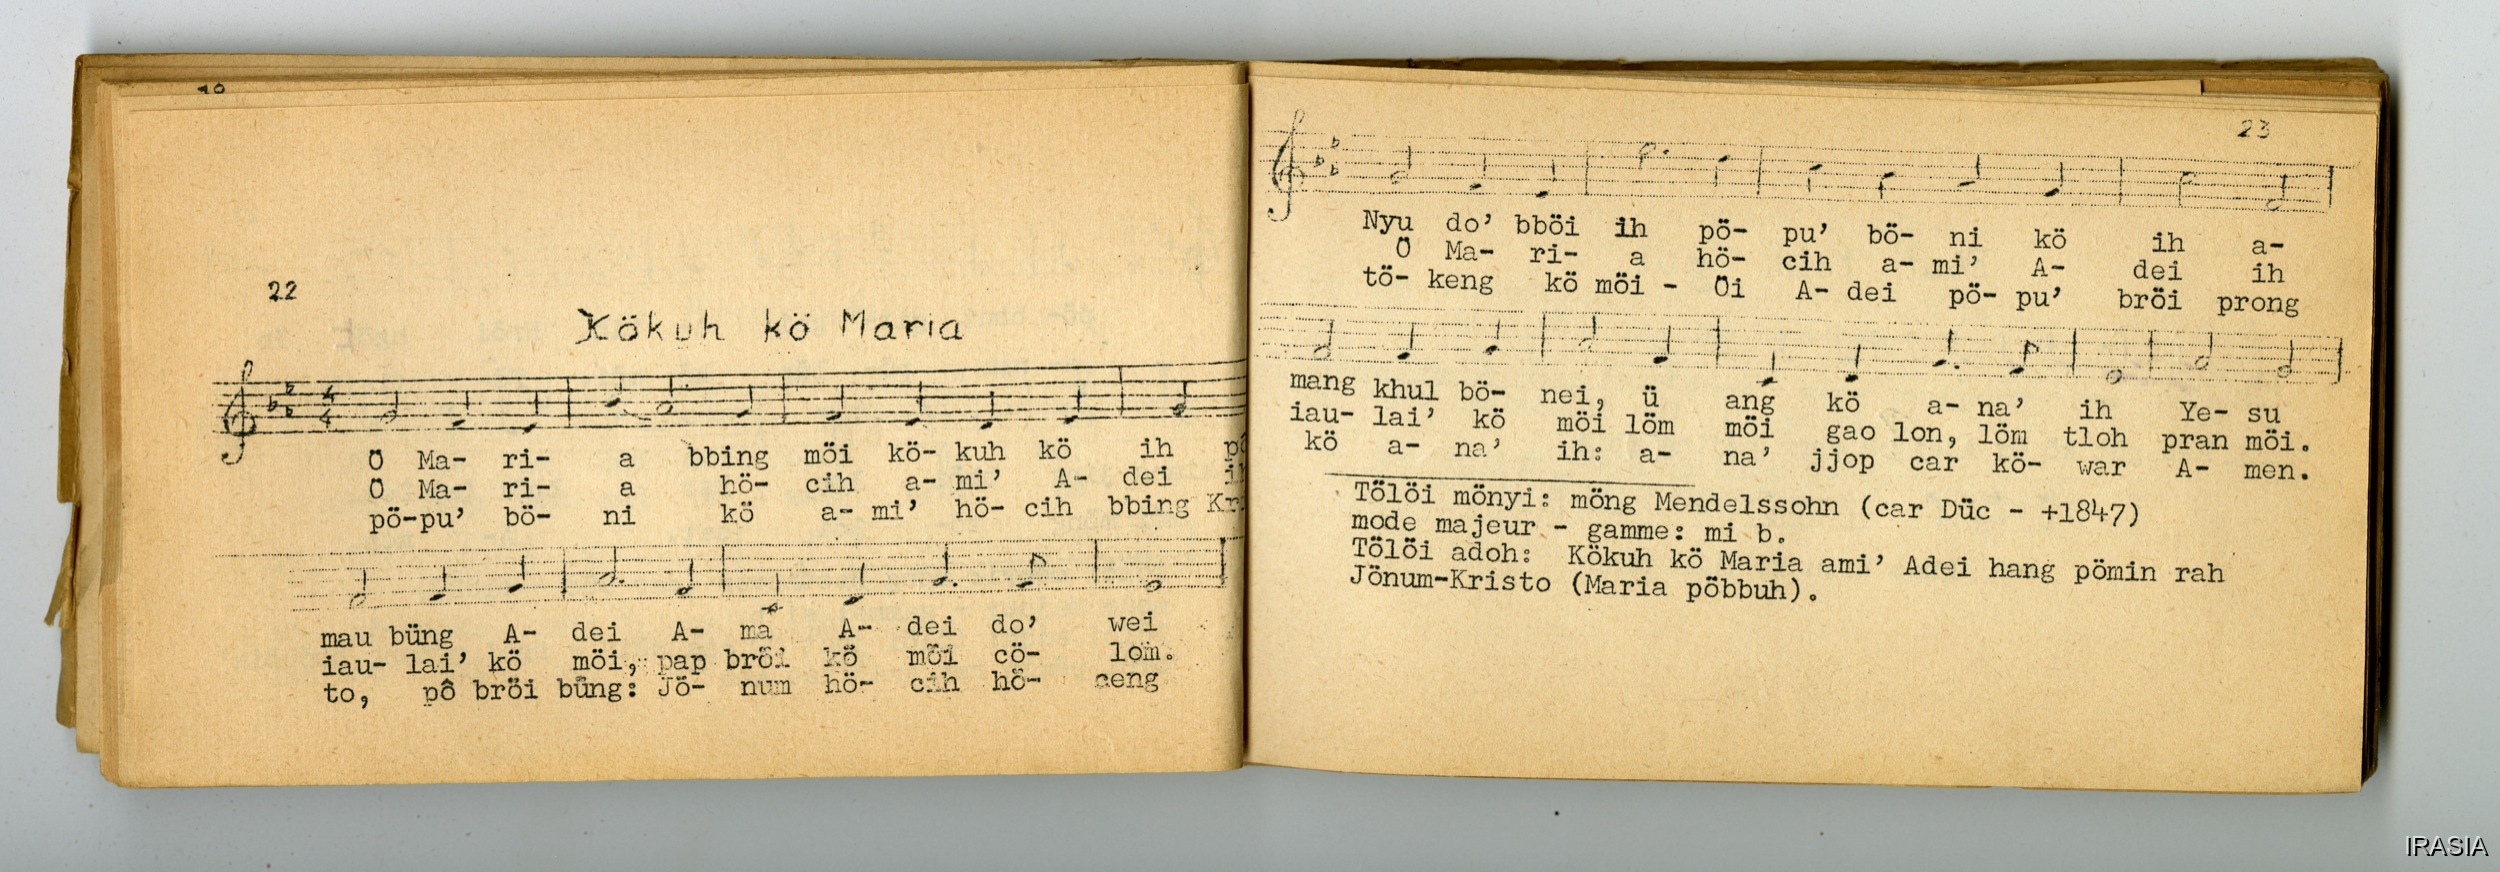 22
Kökuh kö Maria
Ö Ma- ri- a bbing möi kö- kuh kö ih
Ö Ma- ri- a hö- cih a- mi' A- dei
pö-pu' bö- ni kö a- mi' hö- cih bbing
mau büng A- dei A- ma A- dei do' wei
iau- lai' kö möi, pap bröi kö möi cö- lom.
to, pô bröi büng: Jö- num hö- cih hö-
23
Nyu do' bböi ih pö- pu' bö- ni kö ih a-
Ö Ma- ri- a hö- cih a- mi' A- dei ih
tö- keng kö möi - Öi A- dei pö- pu' bröi prong
mang khul bö- nei, ü ang kö a- na' ih Ye- su
iau- lai' kö möi löm möi gao lon, löm tloh pran möi.
kö a- na' ih: a- na' jjop car kö- war A- men.
Tölöi mönyi: möng Mendelssohn (car Düc - +1847)
mode majeur - gamme: mi b.
Tölöi adoh: Kökuh kö Maria ami' Adei hang pömin rah
Jönum-Kristo (Maria pöbbuh).
IRASIA